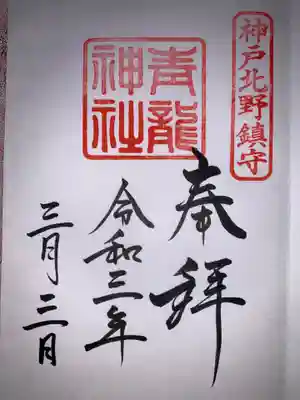 神戸北野鎮守
奉拝
青龍神社
令和三年
三月三日